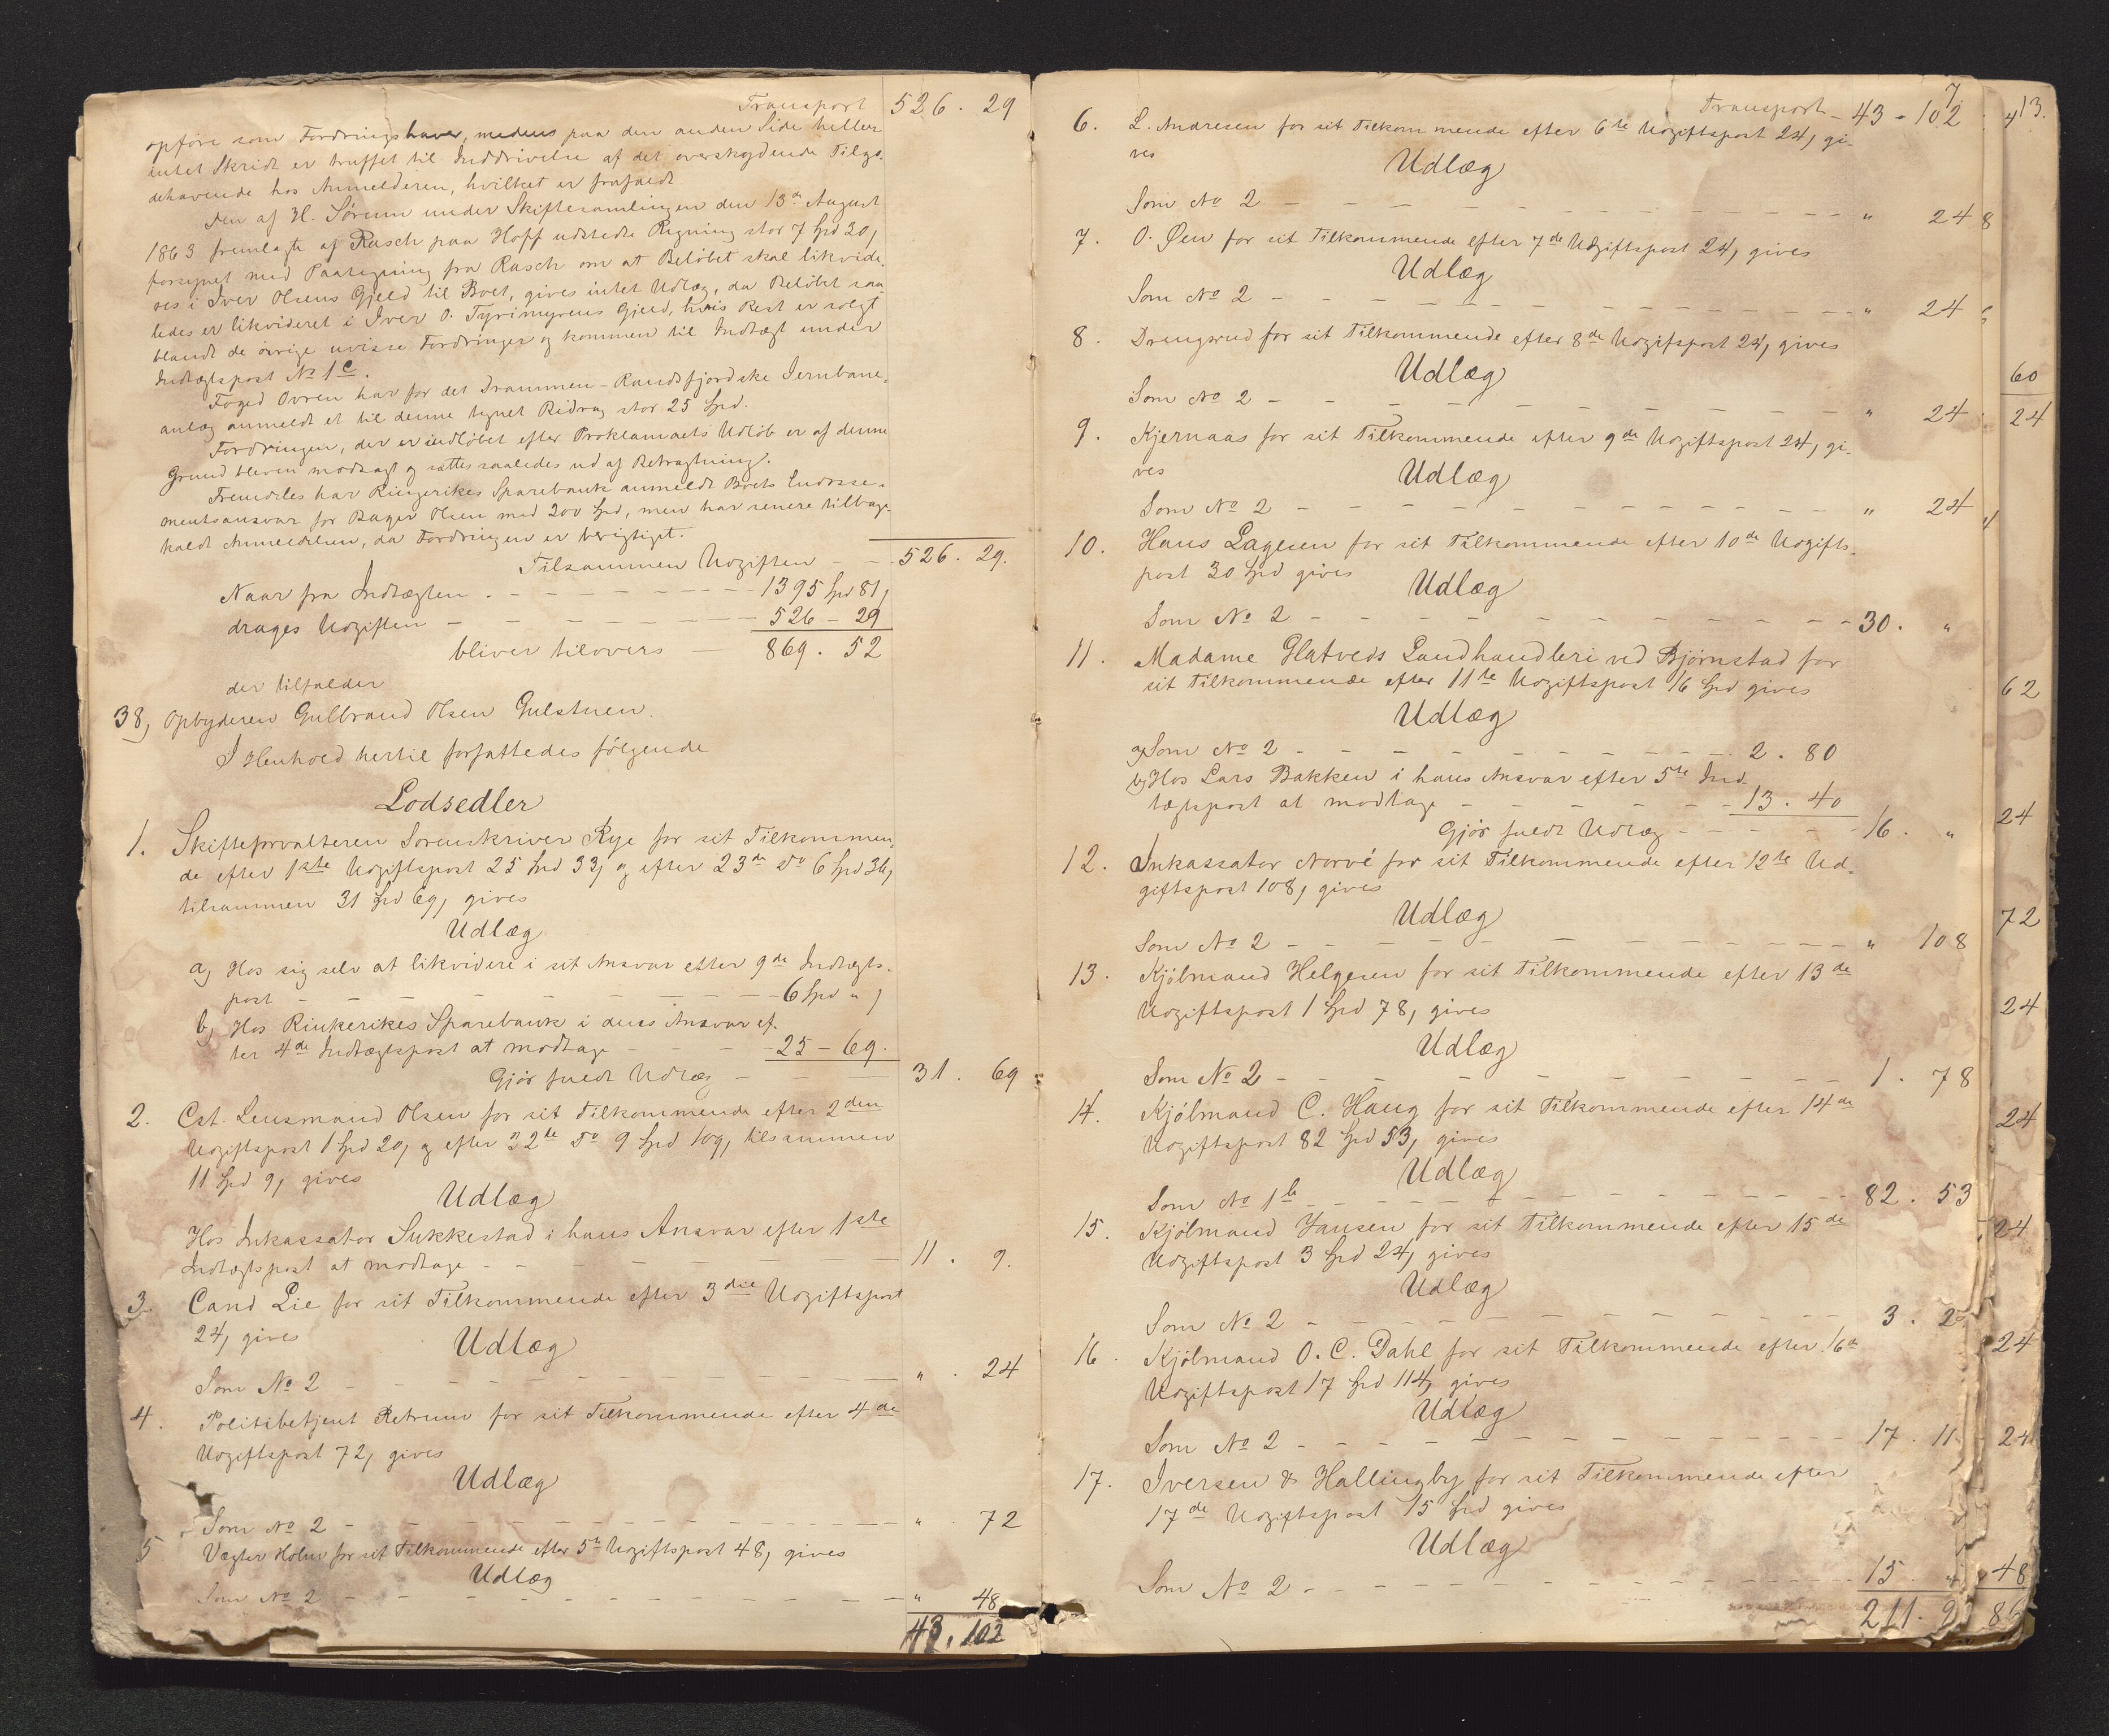 Transport 526. 29
opføre som Fordringshaver, medens paa den anden Side heller
intet Skridt er truffet til Inddrivelse af det overskydende Tilgo-
dehavende hos Anmelderen, hvilket er frafaldt
Den af H. Sørum under Skiftesamlingen den 13de August
1863 fremlagte af Rasch paa Hoff udstedte Regning stor 7 Spd 20,
forsynet med Paategning fra Rasch om at Beløbet skal likvide-
res i Iver Olsens Gjeld til Boet, gives intet Udlæg, da Beløbet saa-
ledes er likvideret i Iver O. Tyrimyrens Gjeld, hvis Rest er solgt
blandt de øvrige uvisse Fordringer og kommen til Indtægt under
Indtægtspost No 1 c.
Foged Ovren har for det Drammen-Randsfjordske Jernbane-
anlæg anmeldt et til denne tegnet Bidrag stor 25 Spd.
Fordringen, der er indløbet efter Proklamaets Udløb er af denne
Grund bleven modsagt og sættes saaledes ud af Betragtning.
Fremdeles har Ringerikes Sparebank anmeldt Boets Endosse-
mentsansvar for Bager Olsen med 200 Spd, men har senere tilbage-
kaldt Anmeldelsen, da Fordringen er berigtiget.
Tilsammen Udgiften - - 526. 29.
Naar fra Indtægten - - - 1395 Spd 81,
drages Udgiften - - - 526 - 29
bliver tilovers - 869. 52
der tilfalder
38, Opbyderen Gulbrand Olsen Gulstuen.
I Henhold hertil forfattedes følgende
Lodsedler
1. Skifteforvalteren Sorenskriver Rye for sit Tilkommen-
de efter 1ste Udgiftspost 25 Spd 33, og efter 23de Do 6 Spd 36,
tilsammen 31 Spd 69, gives
Udlæg
a, Hos sig selv at likvidere i sit Ansvar efter 9de Indtægts-
post - - - 6 Spd " ,
b, Hos Rinkerikes Sparebank i dens Ansvar ef-
ter 4de Indtægtspost at modtage - - 25 - 69.
Gjør fuldt Udlæg - - - 31. 69
2. Cst. Lensmand Olsen for sit Tilkommende efter 2den
Udgiftspost 1 Spd 20, og efter 32te Do 9 Spd 109, tilsammen
11 Spd 9, gives
Udlæg
Hos Inkassator Sukkestad i hans Ansvar efter 1ste
Indtægtspost at modtage - - - 11. 9.
3. Cand Lie for sit Tilkommende efter 3die Udgiftspost
24, gives
Udlæg
Som No 2 - - - " . 24
4. Politibetjent Retrum for sit Tilkommende efter 4de
Udgiftspost 72, gives
Udlæg
Som No 2 - - - " . 72
5 Vægter Holm for sit Tilkommende efter 5te Udgiftspost 48, gives
Udlæg
Som No 2 - - - " 48
43. 102
7
Transport - 43 - 102
6. L. Andresen for sit Tilkommende efter 6te Udgiftspost 24, gi-
ves
Udlæg
Som No 2 - - - " 24
7. O. Øen for sit Tilkommende efter 7de Udgiftspost 24, gives
Udlæg
Som No 2 - - - " 24
8. Drengsrud for sit Tilkommende efter 8de Udgiftspost 24, gives
Udlæg
Som No 2 - - - " 24
9. Kjernaas for sit Tilkommende efter 9de Udgiftspost 24, gi-
ves
Udlæg
Som No 2 - - - " 24
10. Hans Lagesen for sit Tilkommende efter 10de Udgifts-
post 30 Spd gives
Udlæg
Som No 2 - - - 30. "
11. Madame Glatveds Landhandleri ved Bjørnstad for
sit Tilkommende efter 11te Udgiftspost 16 Spd gives
Udlæg
a, Som No 2 - - - 2. 80
b, Hos Lars Bakken i hans Ansvar efter 5te Ind-
tægtspost at modtage - - - 13. 40
Gjør fuldt Udlæg - - - 16. "
12. Inkassator Norvé for sit Tilkommende efter 12te Ud-
giftspost 108, gives
Udlæg
Som No 2 - - - " 108
13. Kjøbmand Helgesen for sit Tilkommende efter 13de
Udgiftspost 1 Spd 78, gives
Udlæg
Som No 2 - - - 1. 78
14. Kjøbmand C. Haug for sit Tilkommende efter 14de
Udgiftspost 82 Spd 53, gives
Udlæg
Som No 1 b - - - 82. 53
15. Kjøbmand Jansen for sit Tilkommende efter 15de
Udgiftspost 3 Spd 24, gives
Udlæg
Som No 2 - - - 3. 2
16. Kjøbmand O. C. Dahl for sit Tilkommende efter 16de
Udgiftspost 17 Spd 114, gives
Udlæg
Som No 2 - - - 17. 11
17. Iversen & Hallingby for sit Tilkommende efter
17de Udgiftspost 15 Spd gives
Udlæg
Som No 2 - - - 15. "
211. 9
13.
60
24
62
24
72
24
24
24
24
24
48